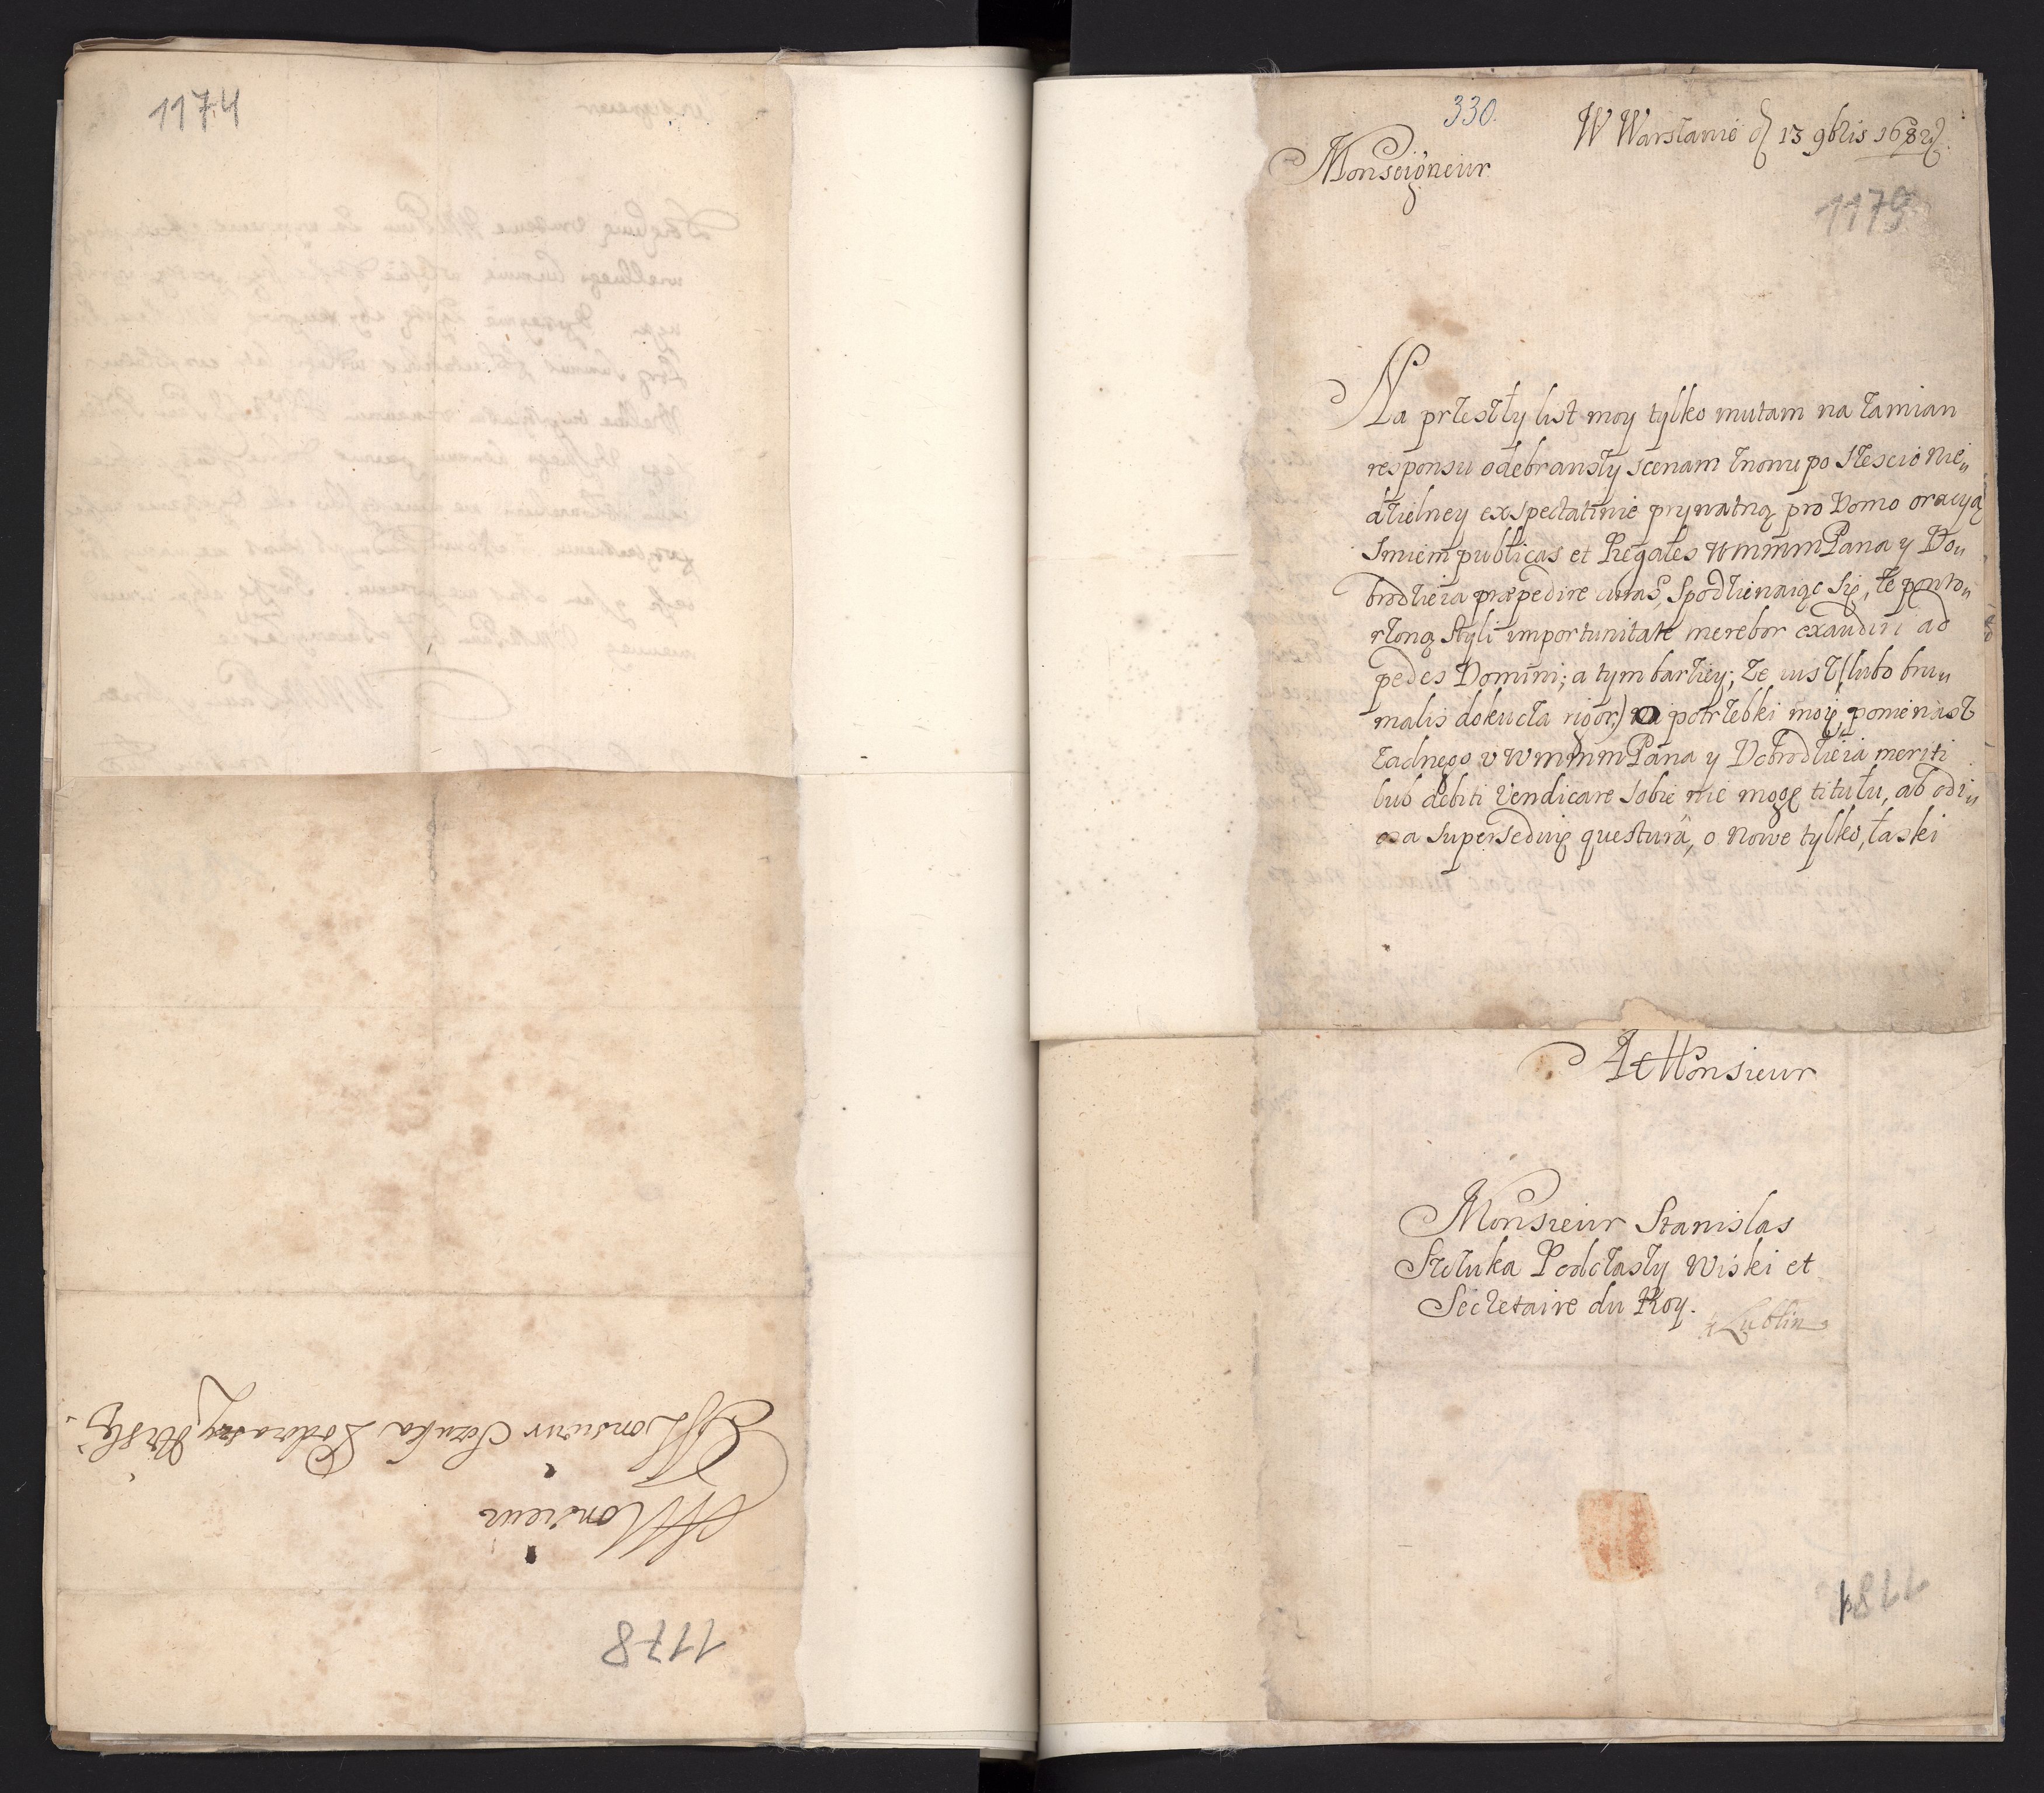 1174
A Monsieur
Monsieur Sczuka Podczaszy Wiski.
1178
330.
W Warszawie d 13 9bris 1682
Monseigneur
1179
Na przeszły list moy tylko mutam na zamian
responsu odebrawszy scenam znowu po szescio nie„
dzielney exspectatiwie prywatną pro Domo oracyą
smiem publicas et Regales WMMM Pana y Do„
brodzieia præpedire curas, spodziewaiąc się, że powto„
rzoną styli importunitate merebor exaudiri ad
pedes Domini; a tym barziey, że iusz (lubo bru„
malis dokucza rigor) na potrzebki moię, poniewasz
żadnego v WMMM Pana y Dobrodzieia meriti
lub debiti vendicare sobie nie mogę titułu, ab odi„
osa superseduię questurâ, o nowe tylko, łaski
A Monsieur
Monsieur Stanislas
Sczuka Podczaszy Wiski et
Secretaire du Roy.
a Lublin
1184